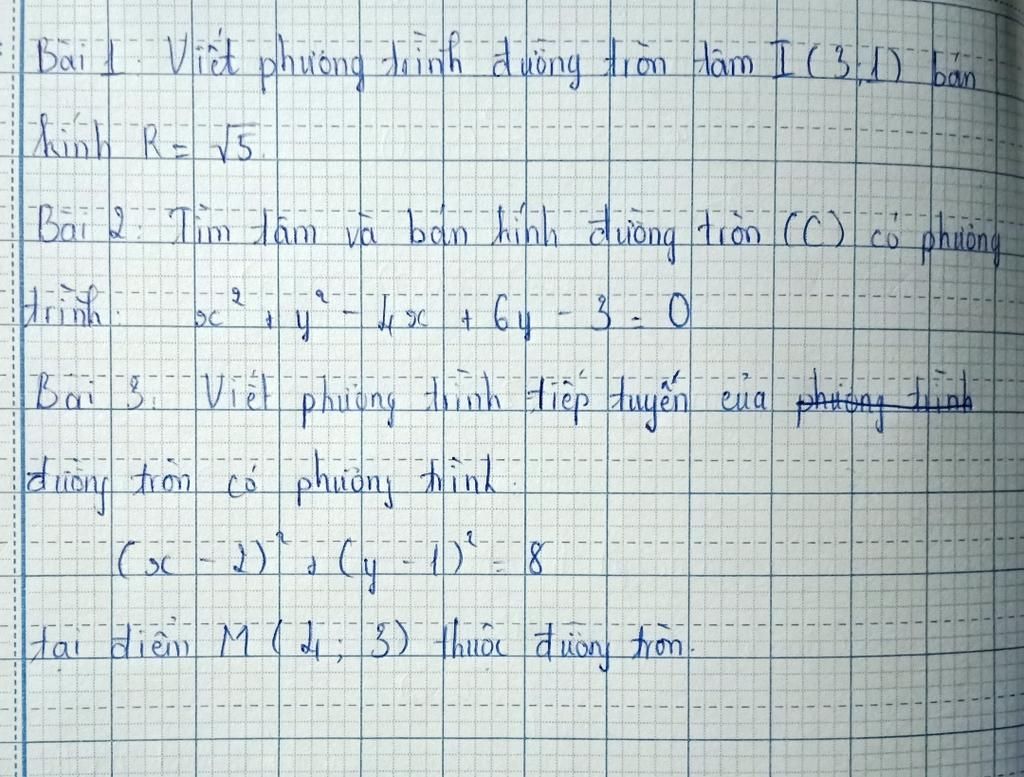 Bài 1. Viết phương trình đường tròn tâm I (3;1) bán
kính R = √5.
Bài 2. Tìm tâm và bán kính đường tròn (C) có phương
trình: x² + y² - 4x + 6y - 3 = 0
Bài 3. Viết phương trình tiếp tuyến của phương trình
đường tròn có phương trình.
(x - 2)² + (y - 1)² = 8
tại điểm M (4; 3) thuộc đường tròn.